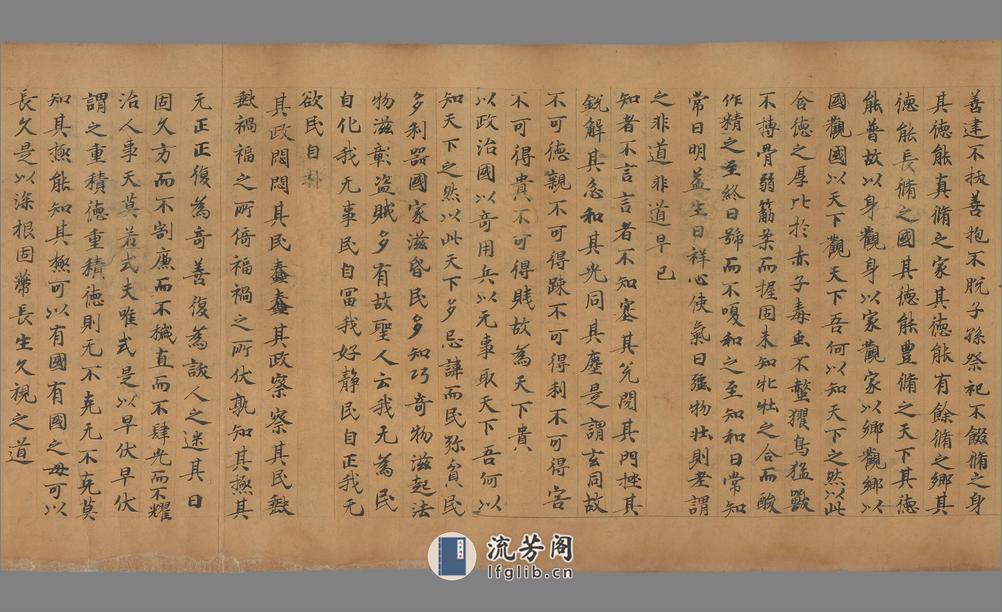 善建不拔善抱不脱子孫祭祀不餟脩之身
其德能真脩之家其德能有餘脩之鄉其
德能長脩之國其德能豊脩之天下其德
能普故以身觀身以家觀家以鄉觀鄉以
國觀國以天下觀天下吾何以知天下之然以此
含德之厚比於赤子毒虫不螫玃鳥猛獸
不摶骨弱筋柔而握固未知牝牡之合而酸
作精之至終日號而不嗄和之至知和日常知
常日明益生日祥心使氣日強物壯則老謂
之非道非道早已
知者不言言者不知塞其兌閉其門挫其
銳解其忿和其光同其塵是謂玄同故
不可德親不可得踈不可得利不可得害
不可得貴不可得賎故為天下貴
以政治國以奇用兵以无事取天下吾何以
知天下之然以此天下多忌諱而民弥貧民
多利器國家滋昏民多知巧奇物滋起法
物滋彰盗賊多有故聖人云我无為民
自化我无事民自冨我好静民自正我无
欲民自朴
其政悶悶其民蠢蠢其政察察其民
禍福之所倚福禍之所伏孰知其極其
无正正復為奇善復為訞人之迷其日
固久方而不割廉而不穢直而不肆光而不耀
治人事天莫若式夫唯式是以早伏早伏
謂之重積德重積德則无不克无不克莫
知其極能知其極可以有國有國之母可以
長久是以深根固蔕長生久視之道
流芳阁
lfglib.cn